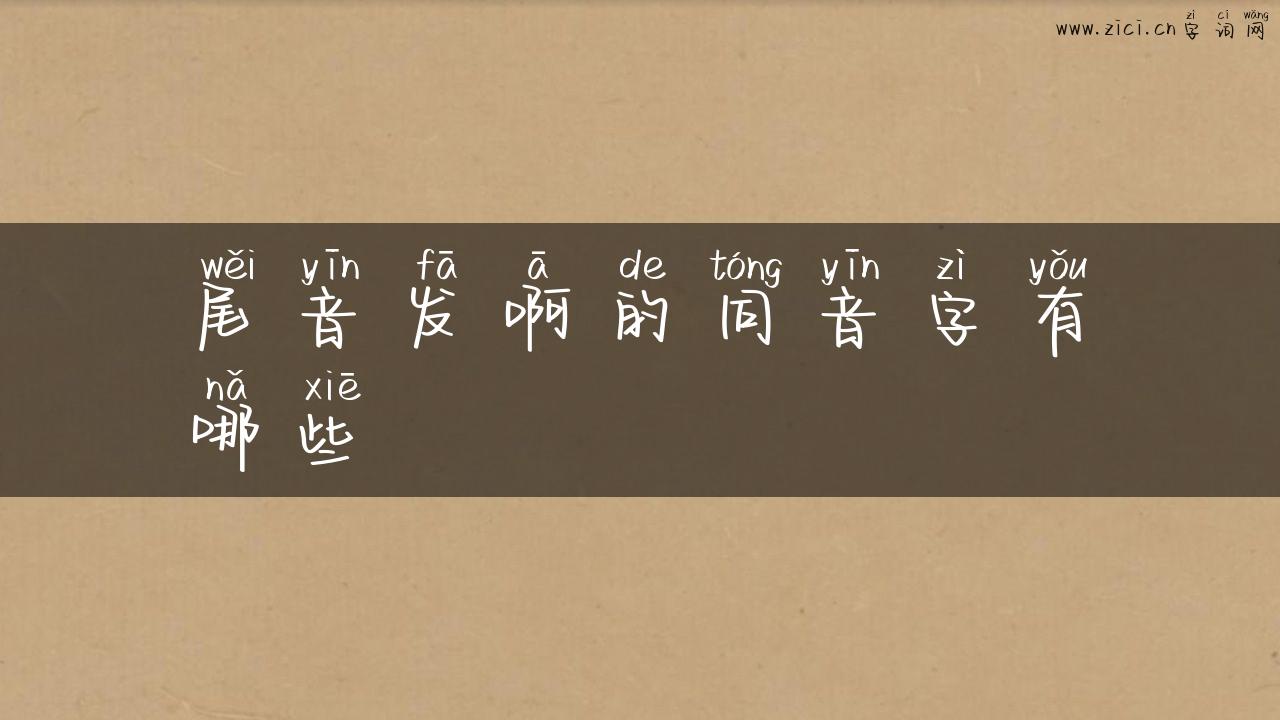 zì cí wǎng
www.zici.cn 字词网
wěi yīn fā ā de tóng yīn zì yǒu
尾音发啊的同音字有
nǎ xiē
哪些